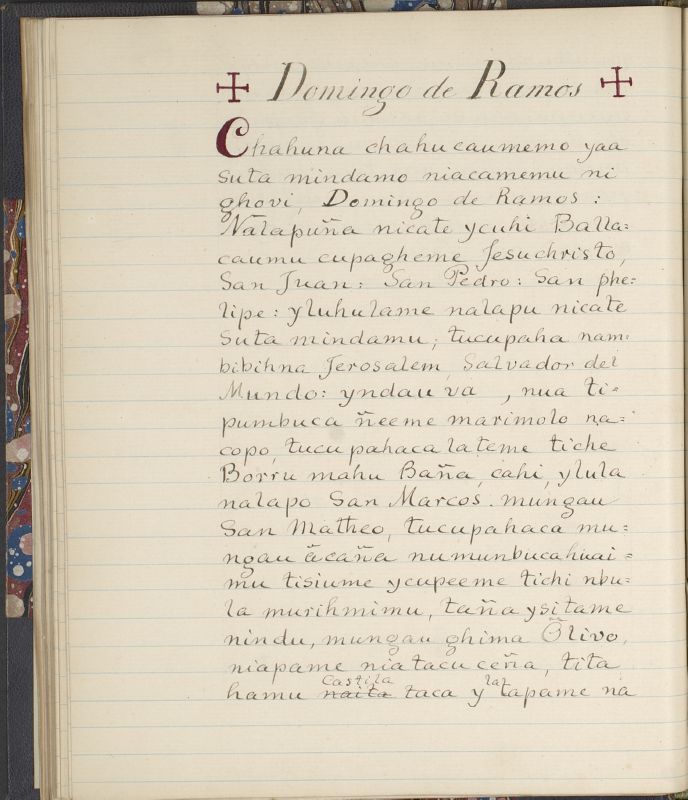 ☩ Domingo de Ramos ☩
Chahuna chahucaumemo yaa
suta mindamo niacamemu ni
ghovi, Domingo de Ramos :
Nalapuña nicate ycuhi Balla=
caumu cupagheme Jesuchristo,
San Juan: San Pedro: San phe=
lipe: yluhulame nalapu nicate
suta mindamu; tucupaha nam=
bibihna Jerosalem, Salvador del
Mundo: yndau va , nua ti=
pumbuca ñeeme marimolo na=
copo, tucupahaca lateme tiche
Borru mahu Baña, cahi, ylula
nalapo San Marcos. mungau
San Matheo, tucupahaca mu=
ngau ãcaña numunbucahuai=
mu tisiume ycupeeme tichi nbu=
la murihmimu, taña ysitame
nindu, mungau ghima Õlivo,
niapame niatacuceña, tita
castila lat
hamu naita taca y tapame na